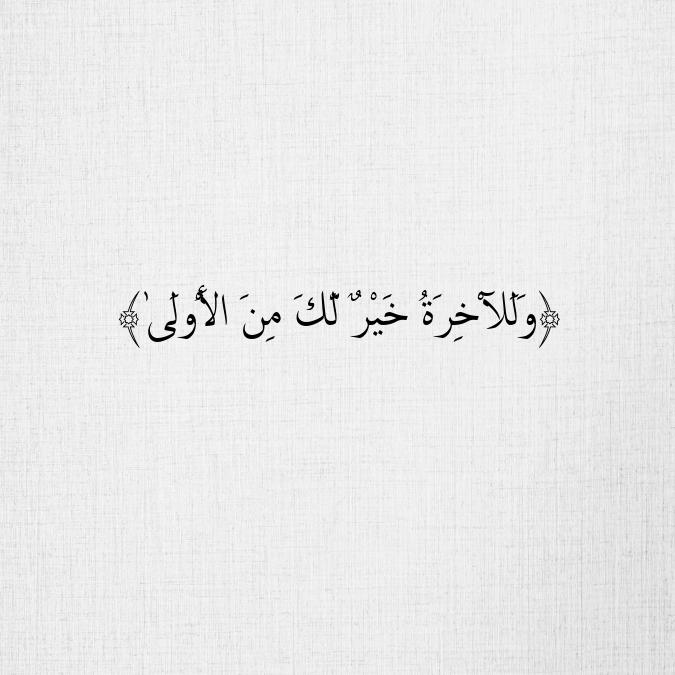 ﴿وَلَلآخِرَةُ خَيْرٌ لَّكَ مِنَ الأُولَىٰ﴾